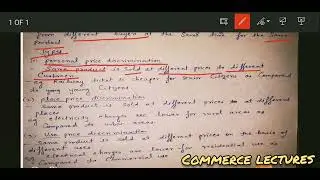 1 OF 1
from different buyer at the same time for the same
Product
Types
(1) personal price discrimination
Same product is sold at different prices to different
Customer
eg Railway ticket is cheaper for senior Citizens as compared
to young Citizens.
(2) place price discrimination
Same product is sold at different prices to at different
place
eg electricity charges are lower for rural areas as
compared to urban areas.
(3) Use price discrimination
Same product is sold at different prices on the basis of
different uses
eg electrical charges are lower for residential use as
compared to commercial use
COMMERCE LECTURES